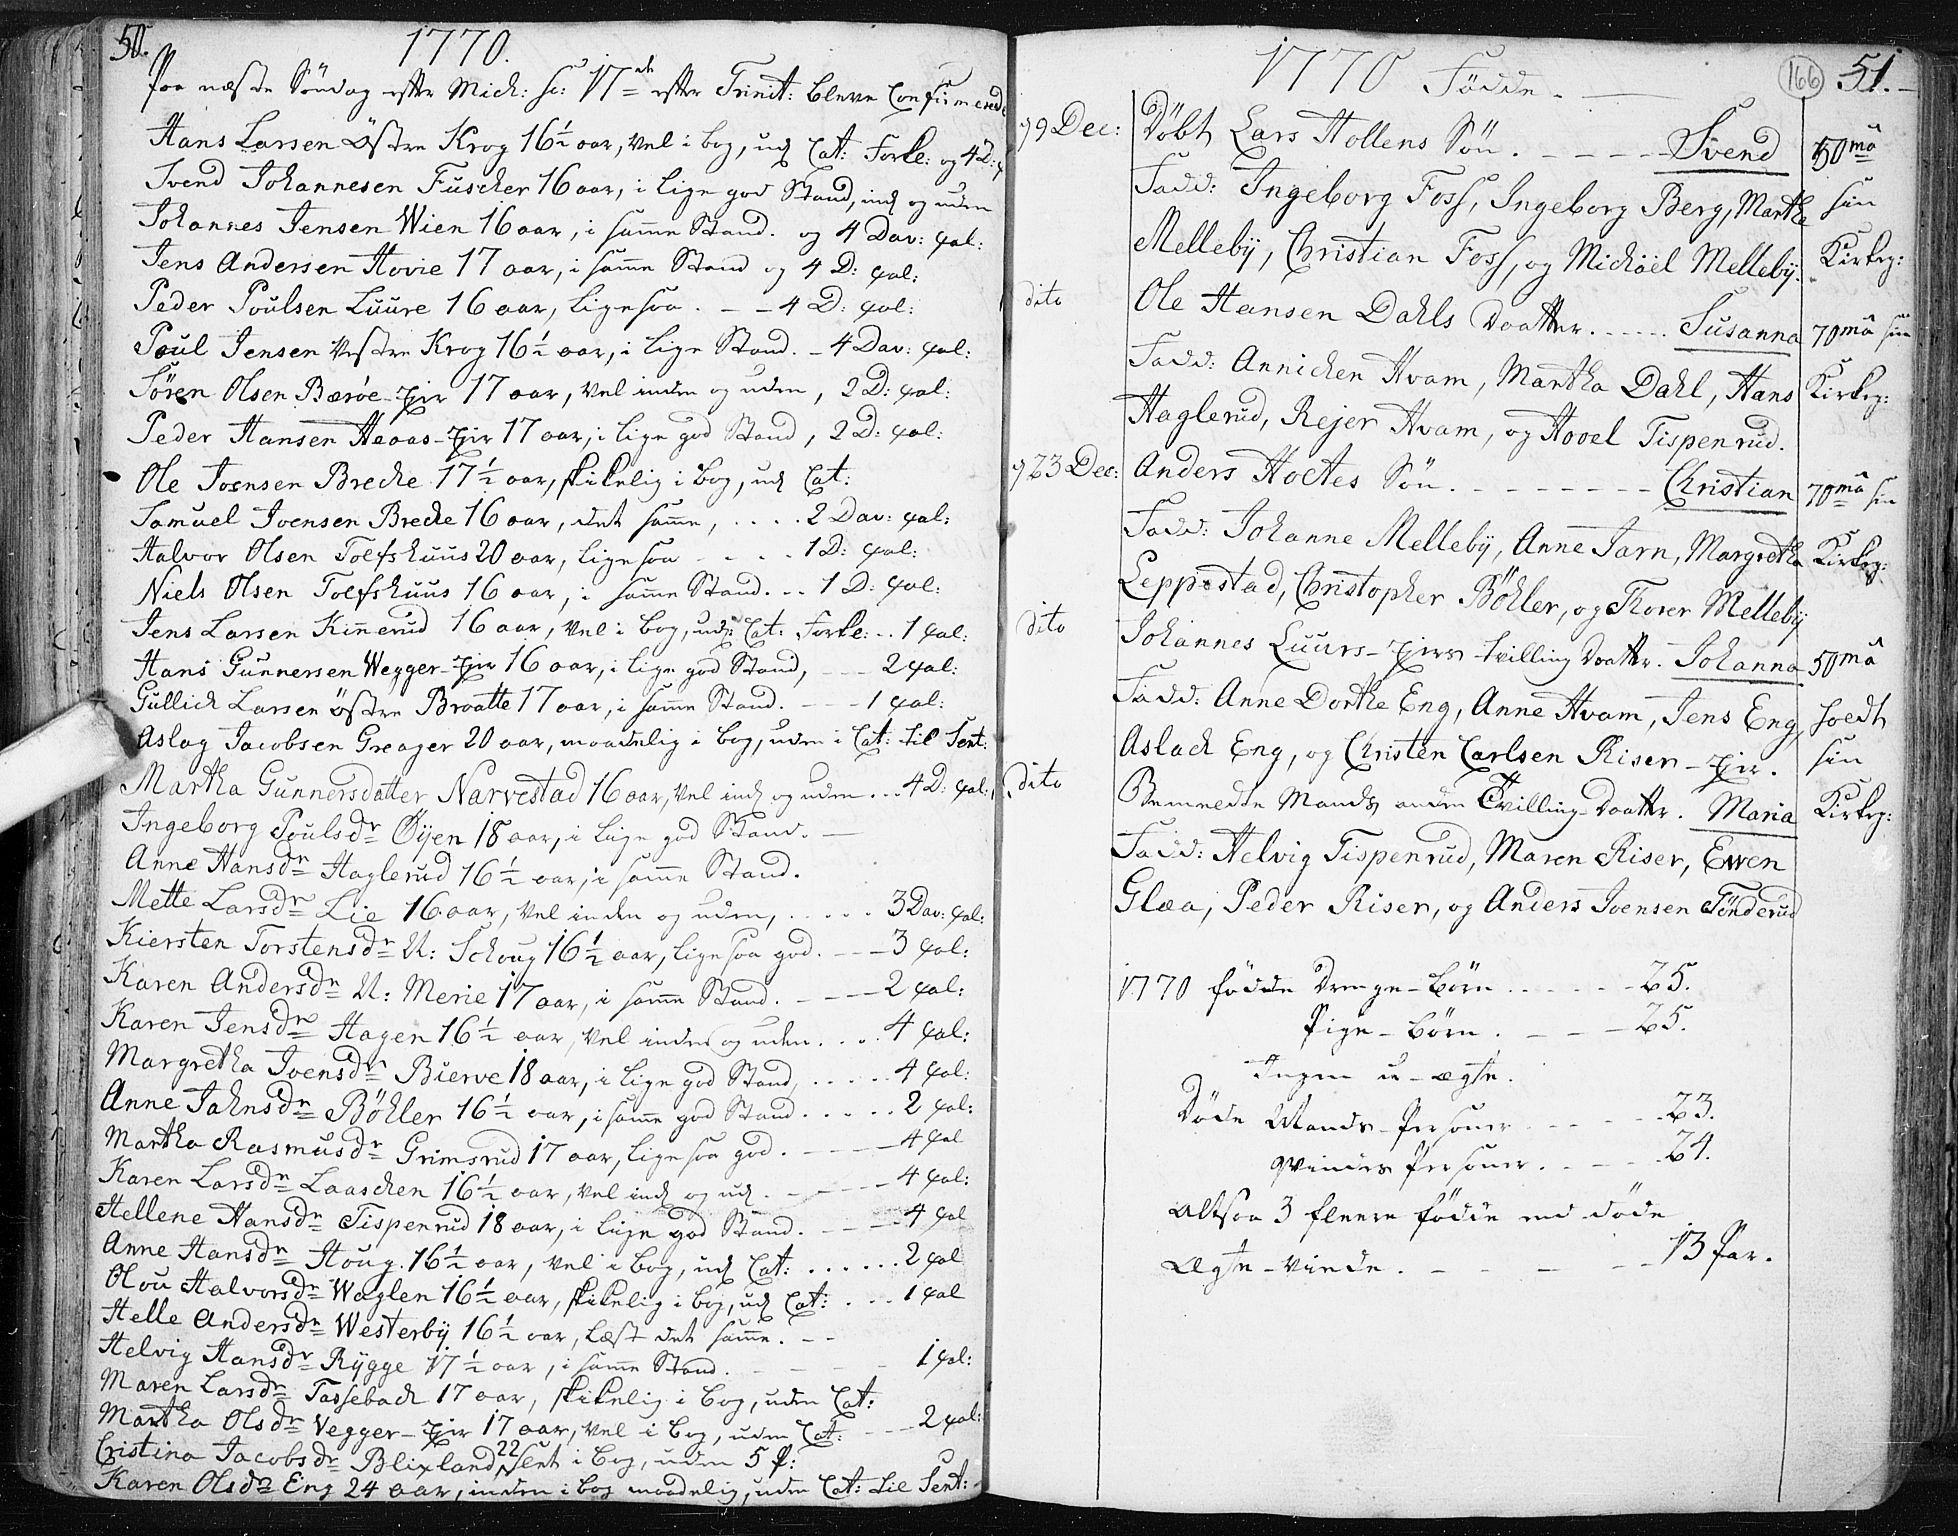 50.
1770.
Paa næste Söndag efter Mich: sc: 17de efter Trinit: bleve Confirmerede
Hans Larsen Østre Krog 16½ aar, vel i bog, ud Cat: Forkl: og 4 D:
Svend Johannesen Fuscher 16 aar, i lige god Stand, ind og uden
Johannes Jensen Wien 16 aar, i samme Stand. og 4 Dav: ψal:
Jens Andersen Hovie 17 aar, i samme Stand og 4 D: ψal:
Peder Poulsen Luure 16 aar, ligesaa. – – 4 D: ψal:
Poul Jensen Vestre Krog 16½ aar, i lige Stand. – 4 Dav: ψal:
Sören Olsen Bærøe-ejer 17 aar, vel inden og uden, 2 D: ψal:
Peder Hansen Heaas-ejer 17 aar, i lige god Stand, 2 D: ψal:
Ole Joensen Brecke 17½ aar, skikelig i bog, ud Cat:
Samuel Joensen Brecke 16 aar, det samme, .... 2 Dav: ψal:
Halvor Olsen Toefshuus 20 aar, ligesaa – – – 1 D: ψal:
Niels Olsen Toefshuus 16 aar, i samme Stand. .. 1 D: ψal:
Jens Larsen Kinnerud 16 aar, vel i bog, ud: Cat: Forkl: .. 1 ψal:
Hans Gunnersen Wegger-ejer 16 aar, i lige god Stand, – – – 2 ψal:
Gullich Larsen østre Braatte 17 aar, i samme Stand. – – – 1 ψal:
Aslag Jacobsen Greager 20 aar, maadelig i bog, uden i Cat: til Sent:
Martha Gunnersdatter Narvestad 16 aar, vel ind og uden ... 4 D: ψal:
Ingeborg Poulsdr Öyen 18 aar, i lige god Stand. –
Anne Hansdr Haglerud 16½ aar, i samme Stand.
Mette Larsdr Lie 16 aar, vel inden og uden, ..... 3 Dav: ψal:
Kiersten Torstensdr N: Schoug 16½ aar, ligesaa god. – – – 3 ψal:
Karen Andersdr N: Merie 17 aar, i samme Stand. – – – – 2 ψal:
Karen Jensdr Hagen 16½ aar, vel inden og uden .... 4 ψal:
Margretha Joensdr Bierve 18 aar, i lige god Stand, ..... 4 ψal:
Anne Jahnsdr Böhler 16½ aar, i samme god Stand ..... 2 ψal:
Martha Rasmusdr Grimsrud 17 aar, ligesaa god. – – – – 4 ψal
Karen Larsdr Laaschen 16½ aar, vel ind og ud. – – – – 4 ψal:
Hellene Hansdr Tispenrud 18 aar, i lige god Stand. – – – 4 ψal
Anne Hansdr Houg. 16½ aar, vel i bog, ud Cat: ...... 2 ψal
Olou Halvorsdr Waglen 16½ aar, skikelig i bog, ud Cat: ... 1 ψal
Helle Andersdr Westerbÿ 16½ aar, læst det samme. – –
Helvig Hansdr Rÿgge 17½ aar, i samme Stand. – – – – 1 ψal:
Maren Larsdr Tassebach 17 aar, skikelig i bog, uden Cat:
Martha Olsdr Vegger-ejer 17 aar, vel i bog, uden Cat: – – – 2 ψal:
Cristina Jacobsdr Blixland, 22 sent i bog, uden 5 P:
Karen Olsdr Eng 24 aar, inden i bog maadelig, uden Cat: til Sent:
1770 Födde. –
166
51.
d 9 Dec: Döbt Lars Hollens Sön. – – – – – Svend 50mâ
Fadd: Ingeborg Foss, Ingeborg Berg, Marthe sin
Mellebÿ, Christian Foss, og Michäel Mellebÿ. Kirkeg:
dito Ole Hansen Dahls Daatter. .... Susanna 70mâ sin
Fadd: Annichen Hvam, Martha Dahl, Hans Kirkeg:
Haglerud, Rejer Hvam, og Hovel Tispenrud.
d 23 Dec: Anders Hoctes Sön. – – – – – – – – Christian 70mâ sin
Fadd: Johanne Mellebÿ, Anne Jarn, Margretha Kirkeg:
Leppestad, Christopher Böhler, og Thorer Mellebÿ
dito Johannes Luurs-ejers tvilling Daatter. Johanna 50mâ
Fadd: Anne Dorthe Eng, Anne Hvam, Jens Eng, soedt
Aslach Eng, og Christen Carlsen Riser-ejer. sin
dito Bemeldte Mands anden Tvilling-Daatter. Maria Kirkeg:
Fadd: Helvig Tispenrud, Maren Riser, Ewen
Glæa, Peder Riser, og Anders Joensen Tönderud
1770 födde Drenge-Börn ..... – 25.
Pige-börn. – – – 25.
Ingen u-ægte.
Döde Mands-Personer – – – – 23.
qvindes Personer. – – – – 24.
Altsaa 3 fleere födde end döde
Ægte-Viede. – – – – – 13 Par.